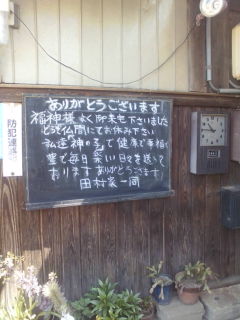 ありがとうございます
福神様 よく御来宅下さいました
どうぞ仏間にてお休み下さい
私達「神の子」で健康で幸福
豊で毎日楽しい日々を送って
おります ありがとうございます
田村家一同
防犯連絡所